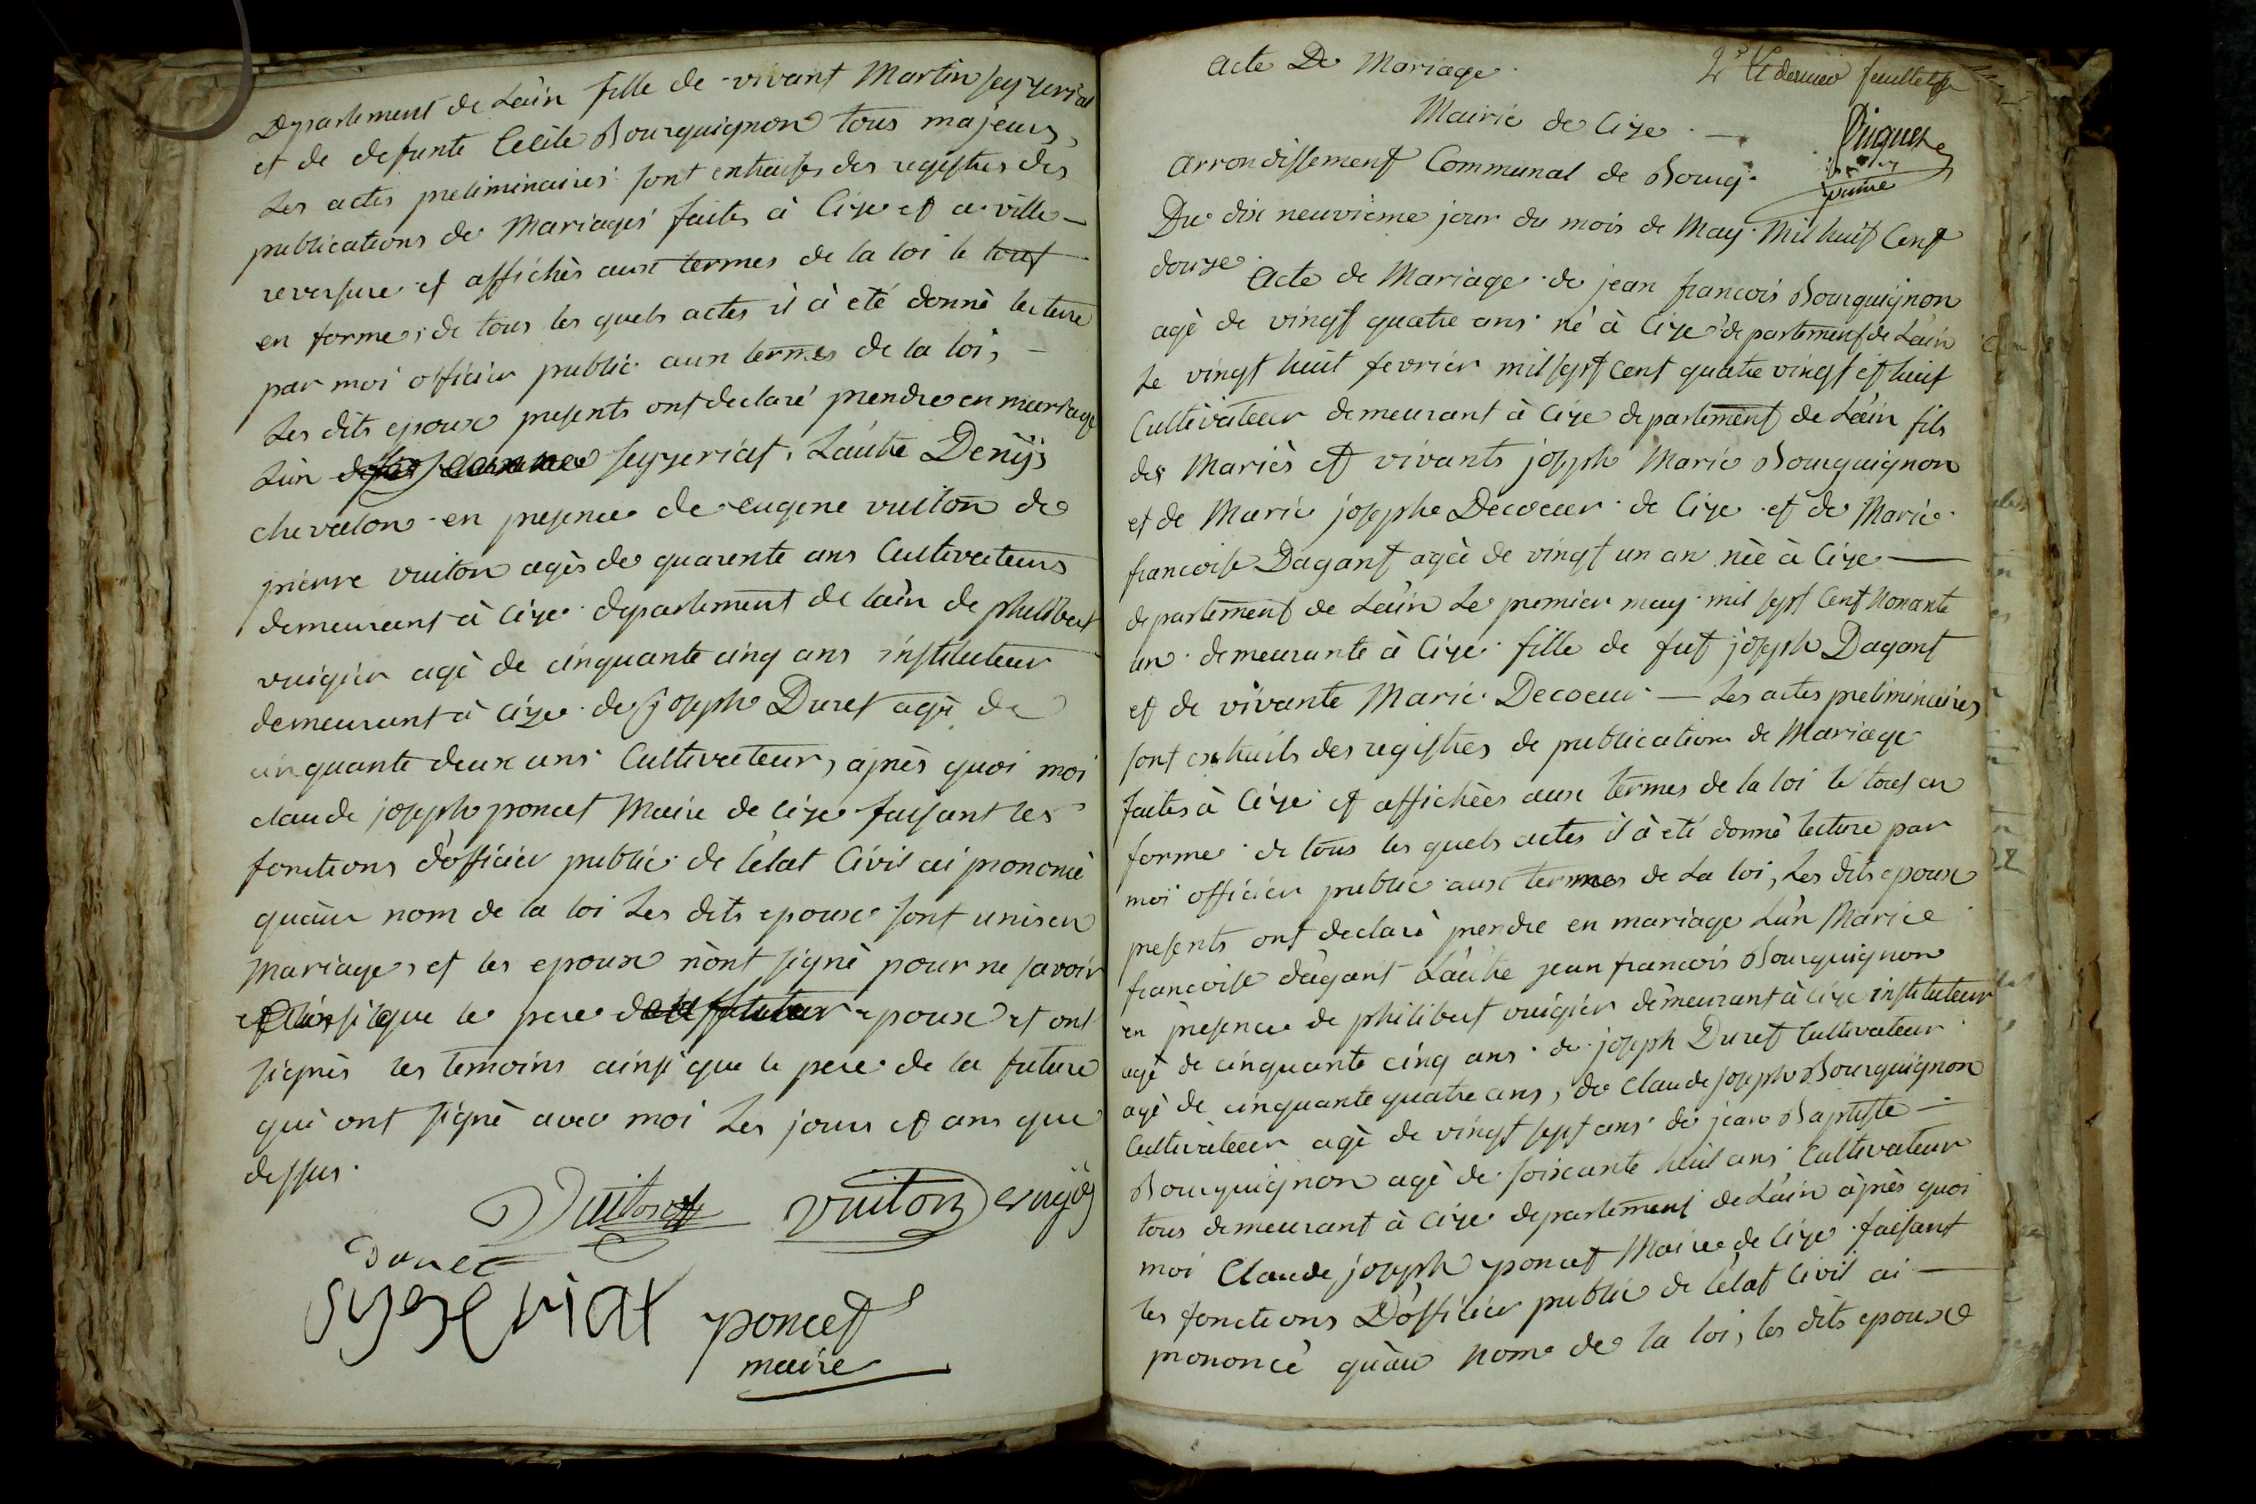 Departement de Lain fille de vivant Martin seyzeriat
et de defunte Cecile Bourguignon tous majeurs,
Les actes preliminaires sont extraits des registres des
publications de Mariages faites à Cize et a ville
reversure et affichés aux termes de la loi le tout
en forme, de tous les quels actes il à eté donné lecture
par moi officier public aux termes de la loi,
Les dits epoux presents ont declaré prendre en mariage
Lun seyzeriat, Lautre Denijs
chevalon en presence de eugene vuiton de
pierre vuiton agés de quarente ans Cultivateurs
demeurant à Cize departement de lain de philibert
vuigier agé de cinquante cinq ans instituteur
demeurant à Cize de Joseph Duret agé de
cinquante deux ans Cultivateur, après quoi moi
claude joseph poncet Maire de cize faisant les
fonctions d'officier public de l'état Civil ai prononcé
quau nom de la loi Les dits epoux sont unis en
mariage, et les epoux n'ont signé pour ne savoir
que le pere epoux et ont
signés les temoins ainsi que le pere de la future
qui ont signé avec moi Les jours et ans que
dessus.
Vuiton vuiton
Duret
Syezeriat poncet
maire
Acte De Mariage
2e et dernier feuillet
Mairie de Cize
arrondissement Communal de Bourg
Du dix neuvieme jour du mois de May Mil huit Cent
douze
Acte de Mariage de jean francois Bourguignon
agé de vingt quatre ans né à Cize departement de Lain
Le vingt huit fevrier mil sept cent quatre vingt et huit
Cultivateur demeurant à Cize departement de Lain fils
des Mariés et vivants joseph Marie Bourguignon
et de Marie josephe Decoeur de Cize et de Marie
francoise Dagant agée de vingt un an née à Cize
departement de Lain Le premier may mil sept Cent Nonante
un demeurante à Cize fille de fut joseph Dagant
et de vivante Marie Decoeur — Les actes preliminaires
sont extraits des registres de publication de Mariage
faites à Cize et affichées aux termes de la loi le tout en
forme de tous les quels actes il à eté donné lecture par
moi officier public aux termes de La loi, Les dits epoux
presents ont declaré prendre en mariage Lun Marie
francoise dagant Lautre jean francois Bourguignon
en presence de philibert vuigier demeurant à Cize instituteur
agé de cinquante cinq ans de joseph Duret Cultivateur
agé de cinquante quatre ans, de Claude joseph Bourguignon
Cultivateur agé de vingt sept ans de jean Baptiste
Bourguignon agé de soixante huit ans Cultivateur
tous demeurant à Cize departement de Lain après quoi
moi Claude joseph poncet Maire de Cize faisant
les fonctions D'officier public de l'état Civil ai
prononcé qu'au nom de la loi, les dits epoux